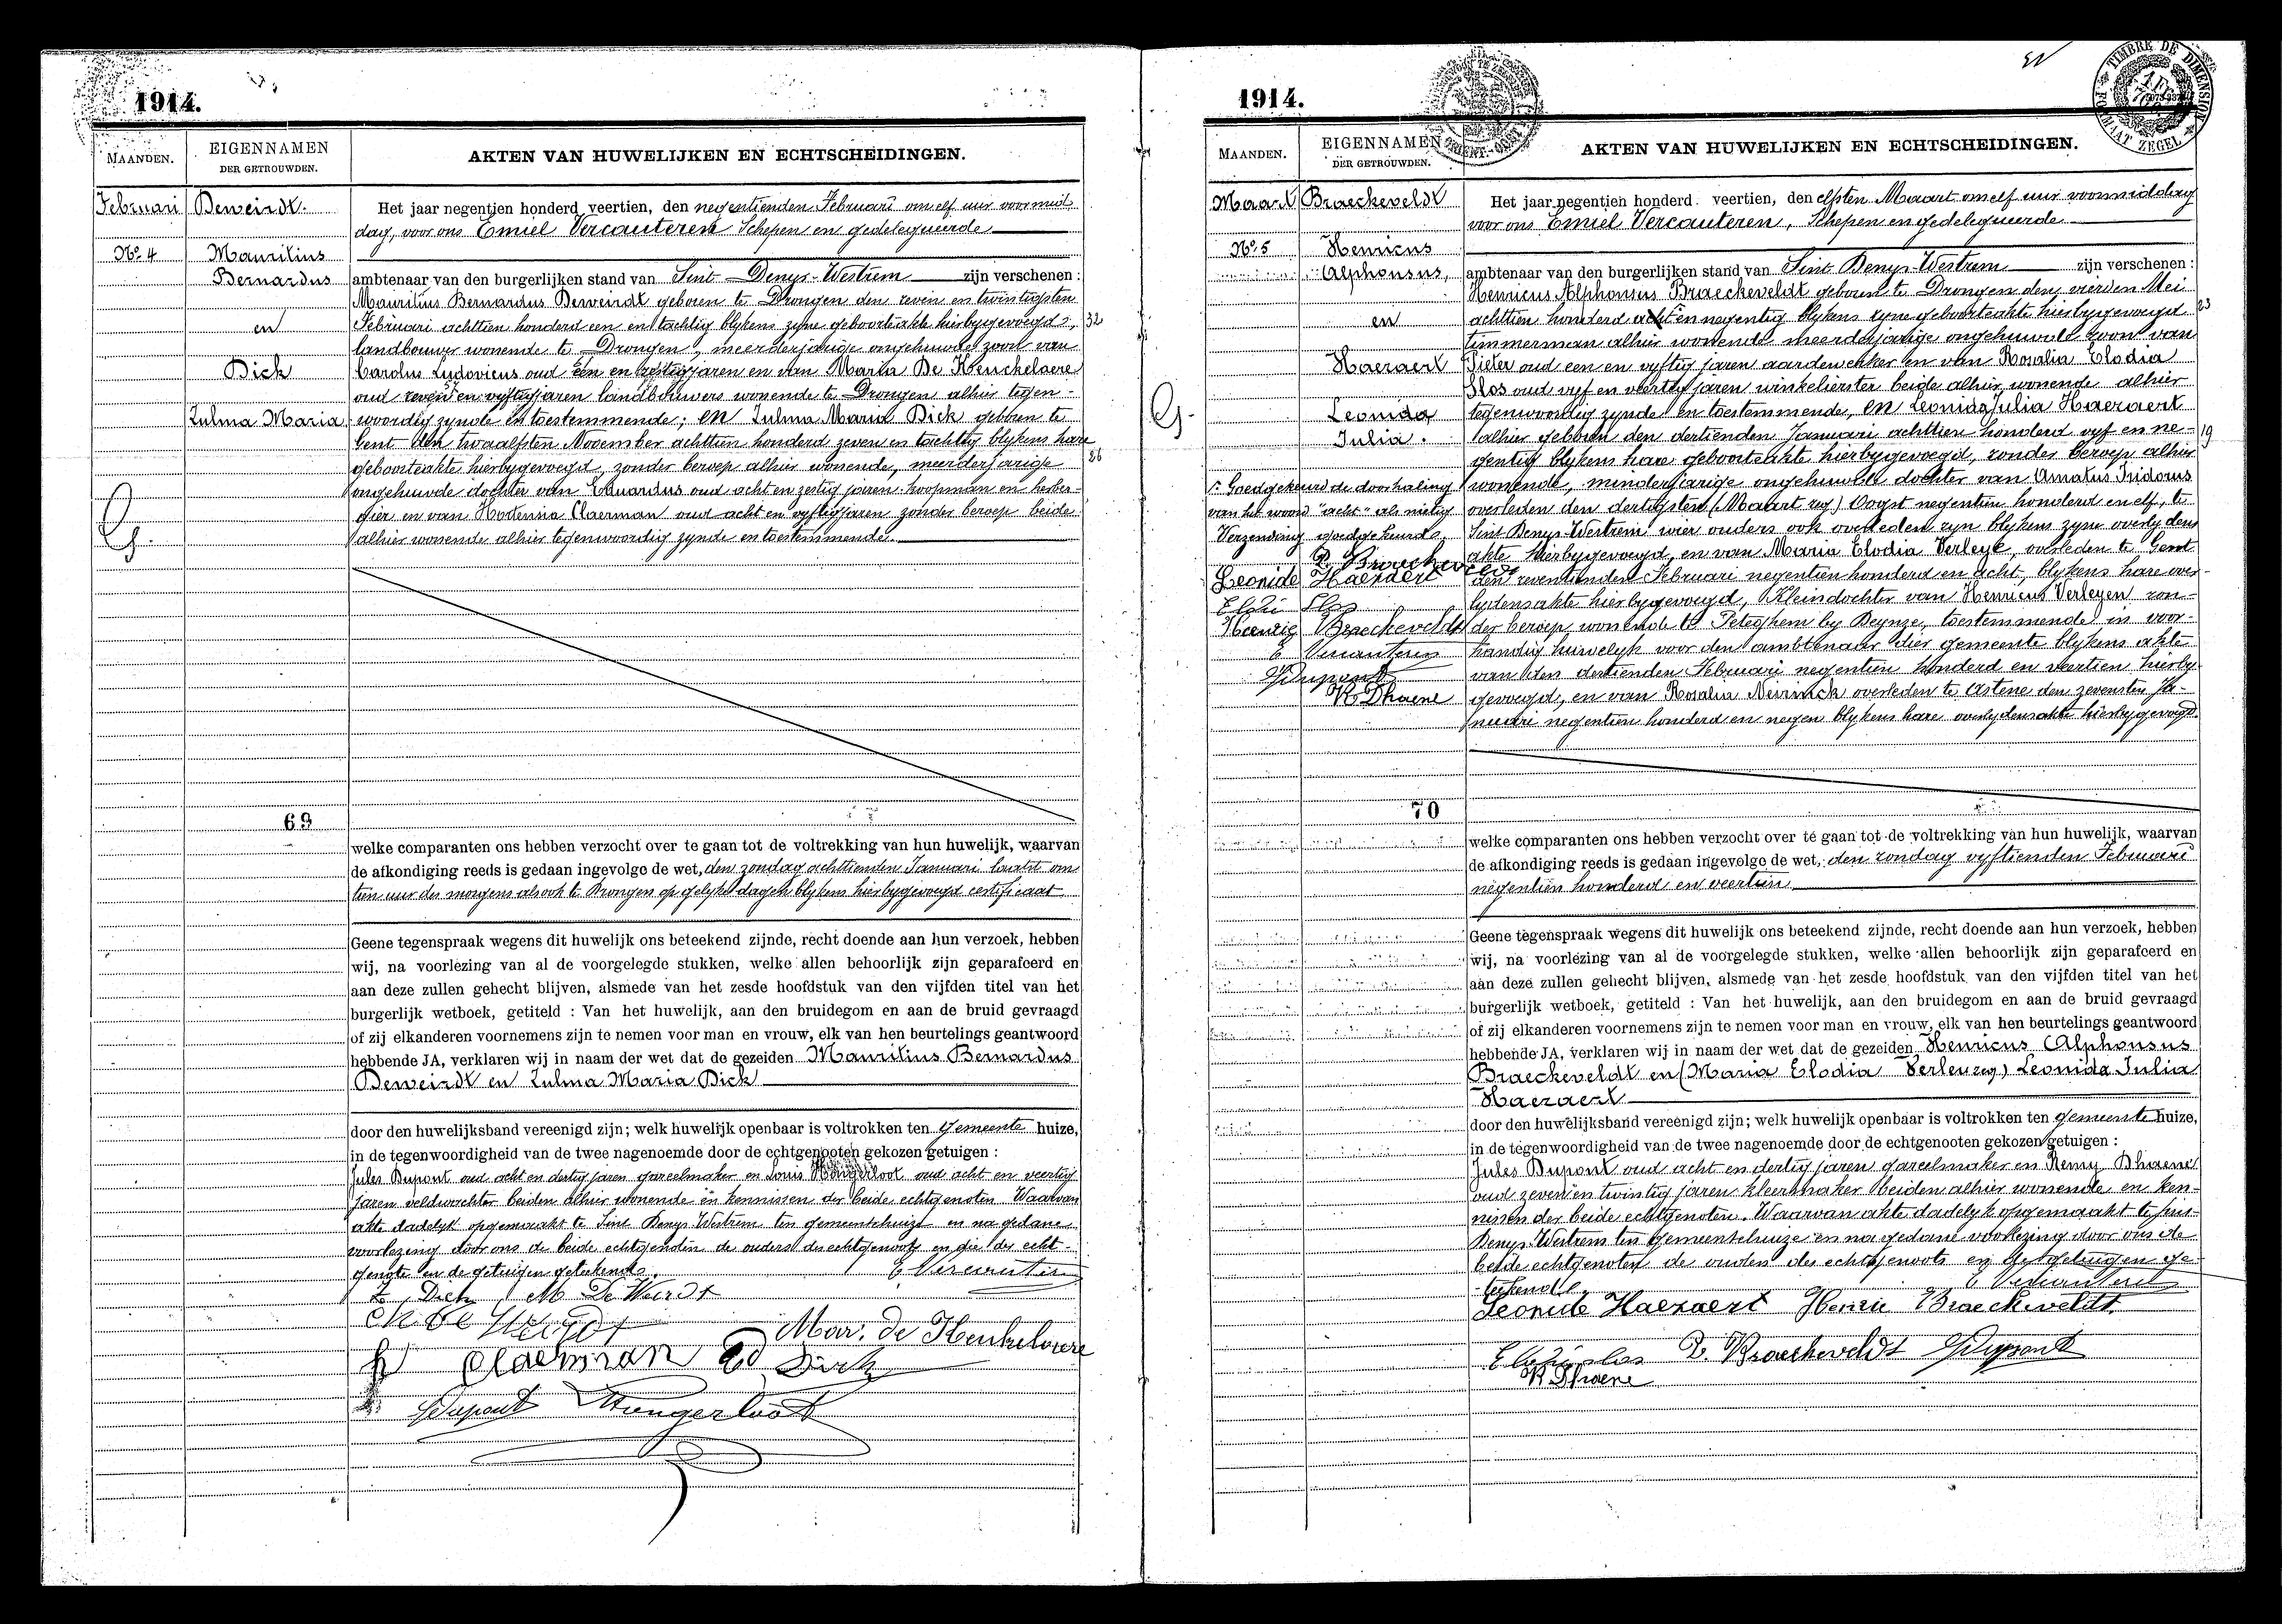 1914.
MAANDEN.
EIGENNAMEN
DER GETROUWDEN.
AKTEN VAN HUWELIJKEN EN ECHTSCHEIDINGEN.
Februari
Deweirdt.
Nº 4
Mauritius
Bernardus
en
Dick
Zulma Maria
Het jaar negentien honderd veertien, den negentienden Februari om elf uur voormid
dag, voor ons Emiel Vercauteren Schepen en gedelegueerde
ambtenaar van den burgerlijken stand van Sint Denys-Westrem zijn verschenen :
Mauritius Bernardus Deweirdt geboren te Drongen den zeven en twintigsten
Februari achttien honderd een en tachtig blykens zyne geboorteakte hierbygevoegd, 32
landbouwer wonende te Drongen, meerderjarige ongehuwde zoon van
Carolus Ludovicus oud een en zestig jaren en van Maria De Henckelaere
oud zeven en vyftig jaren landbouwers wonende te Drongen alhier tegen-
woordig zynde en toestemmende; en Zulma Maria Dick geboren te
Gent den twaalfsten November achttien honderd zeven en tachtig blykens hare
geboorteakte hierbygevoegd, zonder beroep alhier wonende, meerderjarige 26
ongehuwde dochter van Eduardus oud acht en zestig jaren koopman en herber-
gier en van Hortensia Claerman oud acht en vyftig jaren zonder beroep beide
alhier wonende alhier tegenwoordig zynde en toestemmende.
69
welke comparanten ons hebben verzocht over te gaan tot de voltrekking van hun huwelijk, waarvan
de afkondiging reeds is gedaan ingevolge de wet, den zondag achttienden Januari laatst om
tien uur des morgens alsook te Drongen op gelyke dagen blykens hierbygevoegd certificaat
Geene tegenspraak wegens dit huwelijk ons beteekend zijnde, recht doende aan hun verzoek, hebben
wij, na voorlezing van al de voorgelegde stukken, welke allen behoorlijk zijn geparafeerd en
aan deze zullen gehecht blijven, alsmede van het zesde hoofdstuk van den vijfden titel van het
burgerlijk wetboek, getiteld : Van het huwelijk, aan den bruidegom en aan de bruid gevraagd
of zij elkanderen voornemens zijn te nemen voor man en vrouw, elk van hen beurtelings geantwoord
hebbende JA, verklaren wij in naam der wet dat de gezeiden Mauritius Bernardus
Deweirdt en Zulma Maria Dick
door den huwelijksband vereenigd zijn; welk huwelijk openbaar is voltrokken ten gemeente huize,
in de tegenwoordigheid van de twee nagenoemde door de echtgenooten gekozen getuigen :
Jules Dupont oud acht en dertig jaren gareelmaker en Louis Hongerloot oud acht en veertig
jaren veldwachter beiden alhier wonende en kennissen der beide echtgenoten. Waarvan
akte dadelyk opgemaakt te Sint Denys Westrem ten gemeentehuize en na gedane
voorlezing door ons de beide echtgenoten de ouders des echtgenoots en die der echt-
genote en de getuigen geteekend.
E Vercauteren
Z. Dick M De Weirdt
Ch De Weirdt
Mar. de Henkelaere
H Claerman Ed Dick
JDupont Hongerloot
1914.
TIMBRE DE DIMENSION
FORMAAT ZEGEL
MAANDEN.
EIGENNAMEN
DER GETROUWDEN.
AKTEN VAN HUWELIJKEN EN ECHTSCHEIDINGEN.
Maart
Braeckeveldt
Nº 5
Henricus
Alphonsus,
en
Haezaert
Leonida
Julia.
Goedgekeurd de doorhaling
van het woord "acht" als nietig
Verzending goedgekeurd.
P. Braeckeveldt
Leonide Haezaert
Elodie Slos
Henrie Braeckeveldt
E Vercauteren
JDupont
R Dhaene
Het jaar negentien honderd veertien, den elfsten Maart om elf uur voormiddag
voor ons Emiel Vercauteren, Schepen en gedelegueerde
ambtenaar van den burgerlijken stand van Sint Denys-Westrem zijn verschenen :
Henricus Alphonsus Braeckeveldt geboren te Drongen den vierden Mei
achttien honderd acht en negentig blykens zyne geboorteakte hierbygevoegd 23
timmerman alhier wonende meerderjarige ongehuwde zoon van
Pieter oud een en vyftig jaren aardewerker en van Rosalia Elodia
Slos oud vyf en veertig jaren winkelierster beide alhier wonende alhier
tegenwoordig zynde en toestemmende, en Leonida Julia Haezaert
alhier geboren den dertienden Januari achttien honderd vyf en ne- 19
gentig blykens hare geboorteakte hierbygevoegd, zonder beroep alhier
wonende, minderjarige ongehuwde dochter van Amatus Isidorus
overleden den dertigsten (Maart zeg) Oogst negentien honderd en elf, te
Sint Denys-Westrem wier ouders ook overleden zyn blykens zyne overlydens
akte hierbygevoegd, en van Maria Elodia Verleye, overleden te Gent
den zeventienden Februari negentien honderd en acht, blykens hare over-
lydensakte hierbygevoegd, Kleindochter van Henricus Verleyen zon-
der beroep wonende te Peteghem by Deynze, toestemmende in voor-
handig huwelyk voor den ambtenaar dier gemeente blykens akte
van den dertienden Februari negentien honderd en veertien hierby
gevoegd, en van Rosalia Neirinck overleden te Astene den zevensten Ja-
nuari negentien honderd en negen blykens hare overlydensakte hierbygevoegd.
70
welke comparanten ons hebben verzocht over te gaan tot de voltrekking van hun huwelijk, waarvan
de afkondiging reeds is gedaan ingevolge de wet, den zondag vyftienden Februari
negentien honderd en veertien
Geene tegenspraak wegens dit huwelijk ons beteekend zijnde, recht doende aan hun verzoek, hebben
wij, na voorlezing van al de voorgelegde stukken, welke allen behoorlijk zijn geparafeerd en
aan deze zullen gehecht blijven, alsmede van het zesde hoofdstuk van den vijfden titel van het
burgerlijk wetboek, getiteld : Van het huwelijk, aan den bruidegom en aan de bruid gevraagd
of zij elkanderen voornemens zijn te nemen voor man en vrouw, elk van hen beurtelings geantwoord
hebbende JA, verklaren wij in naam der wet dat de gezeiden Henricus Alphonsus
Braeckeveldt en (Maria Elodia Verleu zeg) Leonida Julia
Haezaert
door den huwelijksband vereenigd zijn; welk huwelijk openbaar is voltrokken ten gemeente huize,
in de tegenwoordigheid van de twee nagenoemde door de echtgenooten gekozen getuigen :
Jules Dupont oud acht en dertig jaren gareelmaker en Remy Dhaene
oud zeven en twintig jaren kleermaker beiden alhier wonende en ken-
nissen der beide echtgenoten. Waarvan akte dadelyk opgemaakt te Sint
Denys-Westrem ten Gemeentehuize en na gedane voorlezing door ons de
beide echtgenoten de ouders des echtgenoots en de getuigen ge-
teekend.
E Vercauteren
Leonide Haezaert Henrie Braeckeveldt
Elodie slos P. Braeckeveldt JDupont
R Dhaene